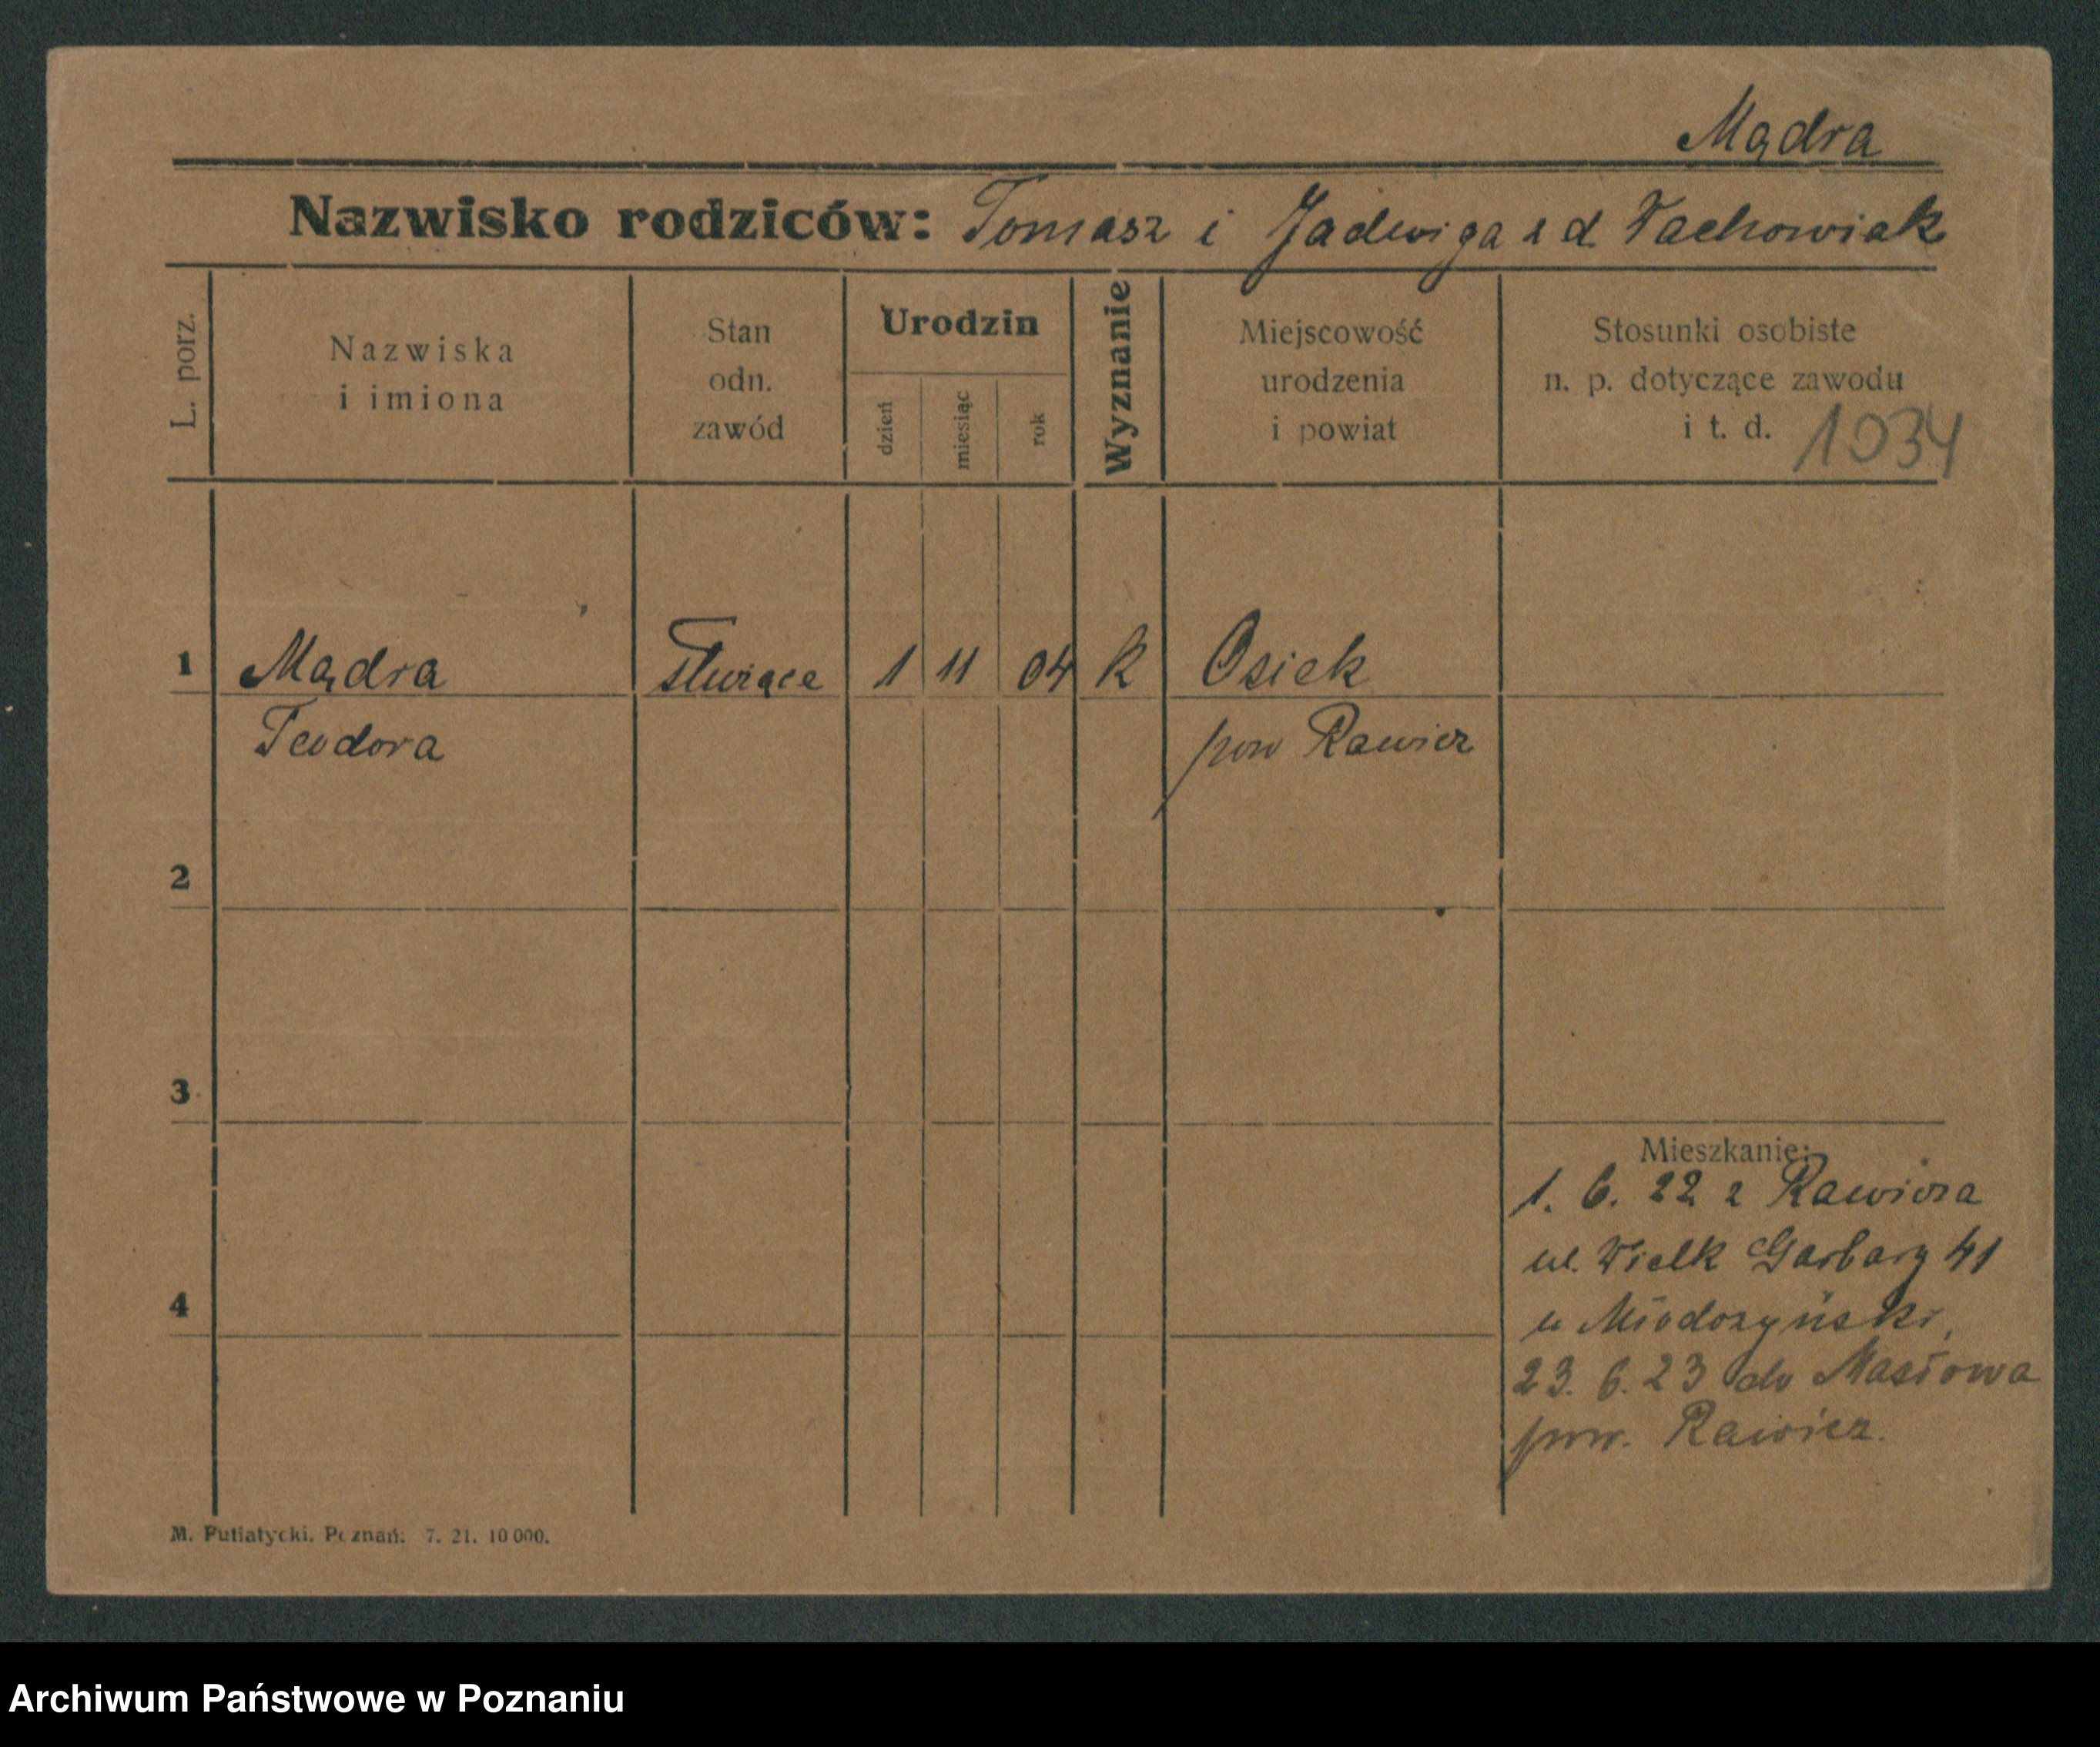 Mądra
Nazwisko rodziców: Tomasz i Jadwiga z d Wachowiak
L. porz.
Nazwiska
i imiona
Stan
odn.
zawód
Urodzin
dzień
miesiąc
rok
Wyznanie
Miejscowość
urodzenia
i powiat
Stosunki osobiste
n. p. dotyczące zawodu
i t. d. 1034
1 Mądra 1 11 04 k Osiek
Teodora pow Rawicz
2
3
Mieszkanie:
1. 6. 22 z Rawicza
ul. Wielk Garbary 41
4
u
23. 6. 23 do Masłowa
pow. Rawicz.
M. Putiatycki. Poznań: 7. 21. 10 000.
Archiwum Państwowe w Poznaniu